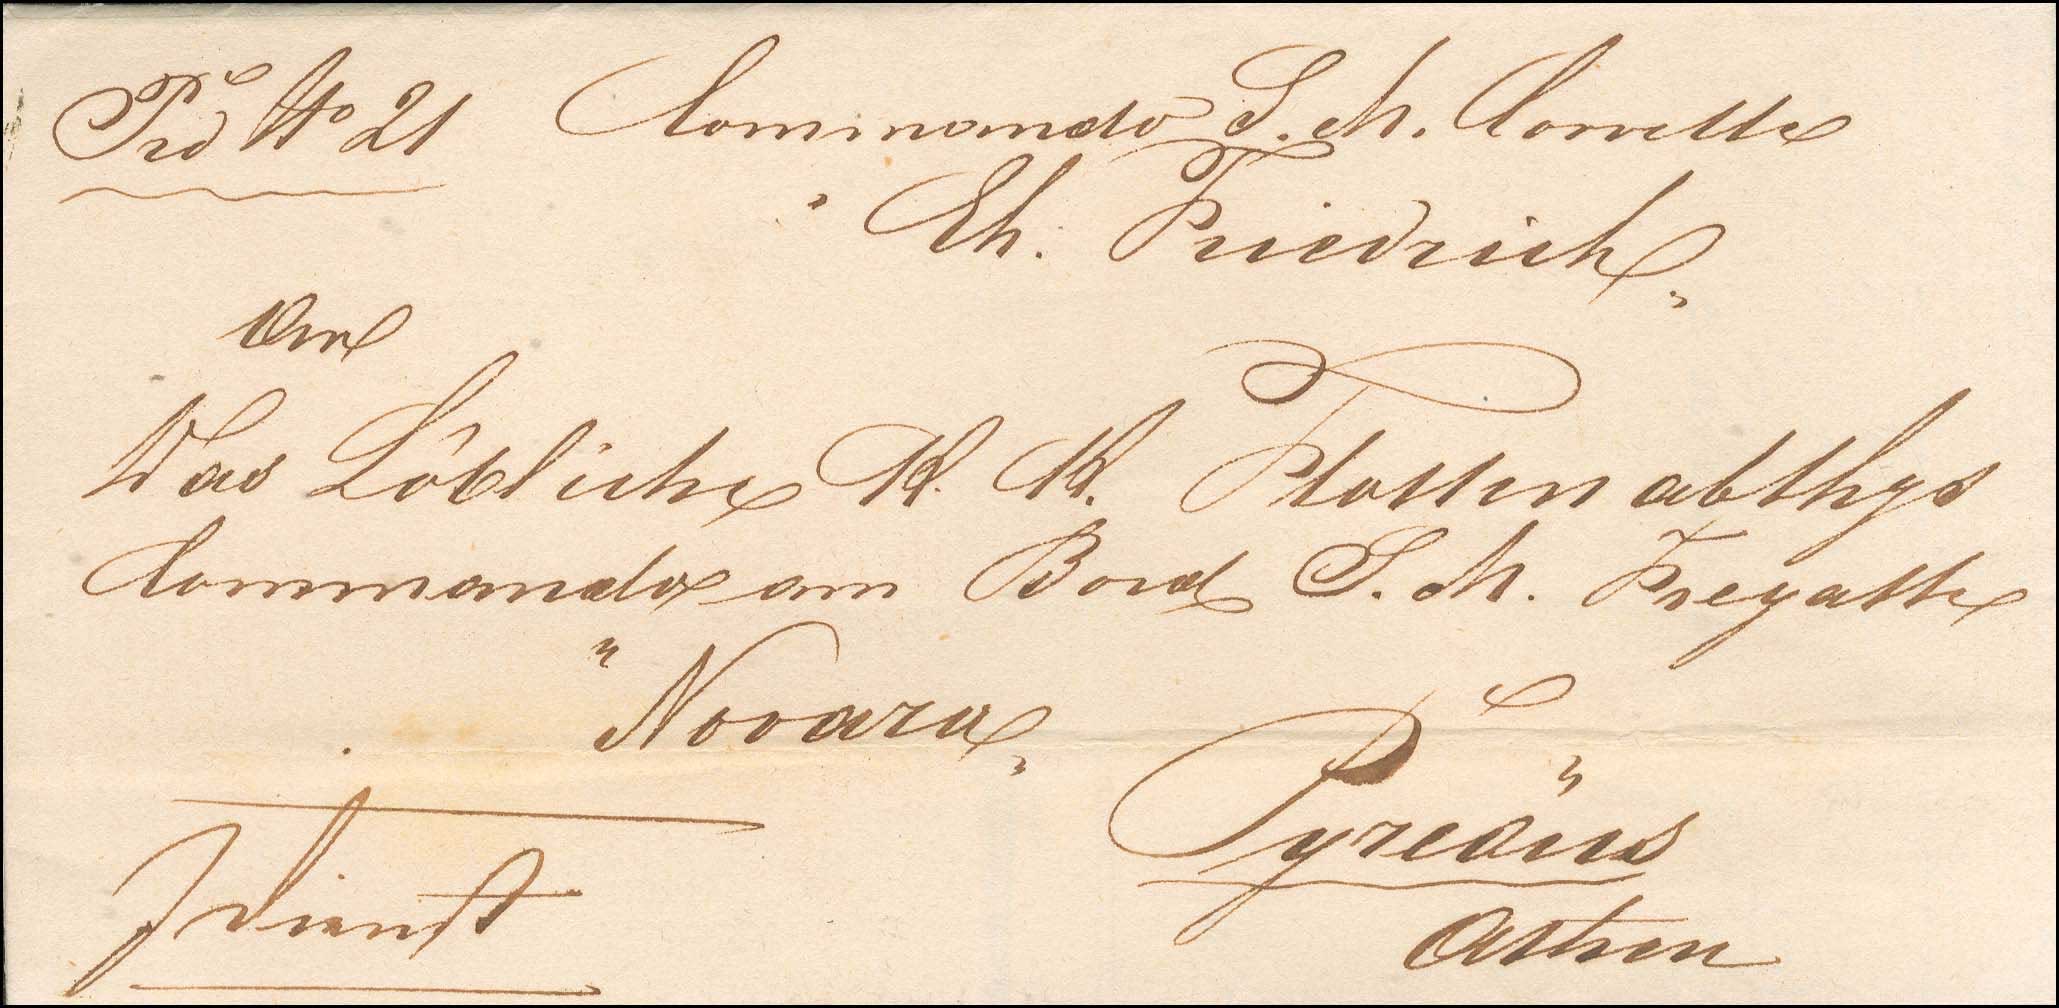 Prd No 21 Commando S. M. Corvette
„Eh. Friedrich„
An
Das Löbliche K. K. Flottenabthgs
Commando am Bord S. M. Fregatte
"Novara„
Pyreäus
Athen
Dienst